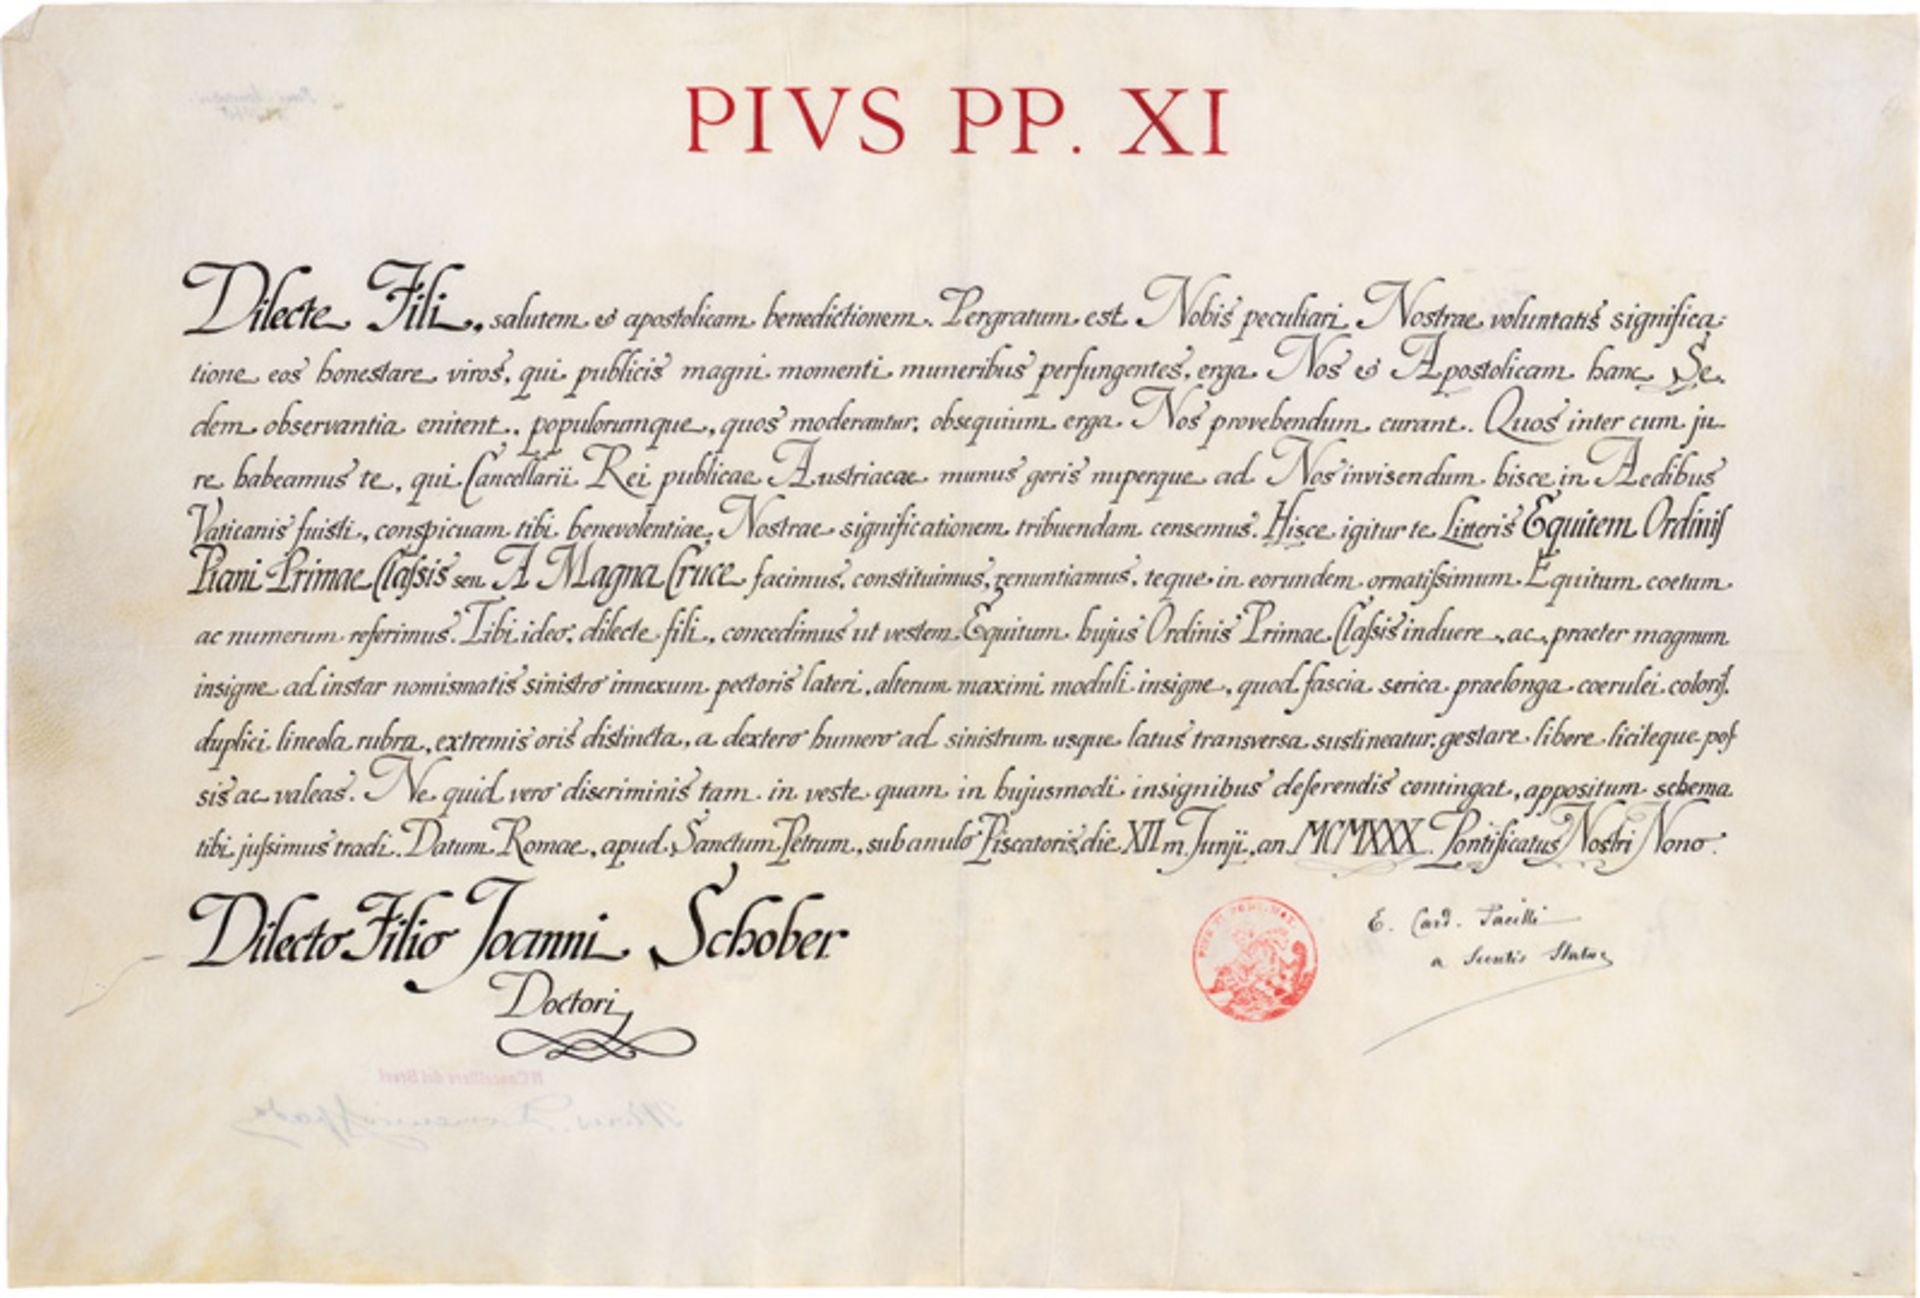 PIVS PP. XI
Dilecte Fili, salutem & apostolicam benedictionem. Pergratum est Nobis peculiari Nostrae voluntatis significa:
tione eos honestare viros, qui publicis magni momenti muneribus perfungentes, erga Nos & Apostolicam hanc Se
dem observantia enitent, populorumque, quos moderantur, obsequium erga Nos provehendum curant. Quos inter cum ju
re habeamus te, qui Cancellarii Rei publicae Austriacae munus geris nuperque ad Nos invisendum hisce in Aedibus
Vaticanis fuisti, conspicuam tibi benevolentiae Nostrae significationem tribuendam censemus. Hisce igitur te Litteris Equitem Ordinis
Piani Primae Classis seu A Magna Cruce facimus, constituimus, renuntiamus, teque in eorundem ornatissimum Equitum coetum
ac numerum referimus. Tibi ideo, dilecte fili, concedimus ut vestem Equitum hujus Ordinis Primae Classis induere, ac, praeter magnum
insigne ad instar nomismatis sinistro innexum pectoris lateri, alterum maximi moduli insigne, quod fascia serica praelonga coerulei coloris,
duplici lineola rubra, extremis oris distincta, a dextero humero ad sinistrum usque latus transversa sustineatur, gestare libere liciteque pos
sis ac valeas. Ne quid vero discriminis tam in veste quam in hujusmodi insignibus deferendis contingat, appositum schema
tibi jussimus tradi. Datum Romae, apud Sanctum Petrum, sub anulo Piscatoris, die XII m. Junji, an. MCMXXX. Pontificatus Nostri Nono.
Dilecto Filio Joanni Schober
Doctori
E. Card. Pacelli
a Secretis Status